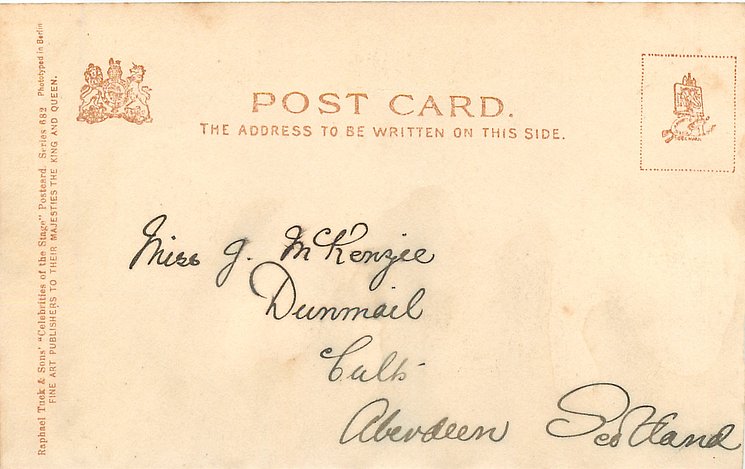 POST CARD.
THE ADDRESS TO BE WRITTEN ON THIS SIDE.
Miss J. McKenzie
Dunmail
Cults
Aberdeen Scotland
Raphael Tuck & Sons' "Celebrities of the Stage" Postcard. Series 682 Phototyped in Berlin
FINE ART PUBLISHERS TO THEIR MAJESTIES THE KING AND QUEEN.